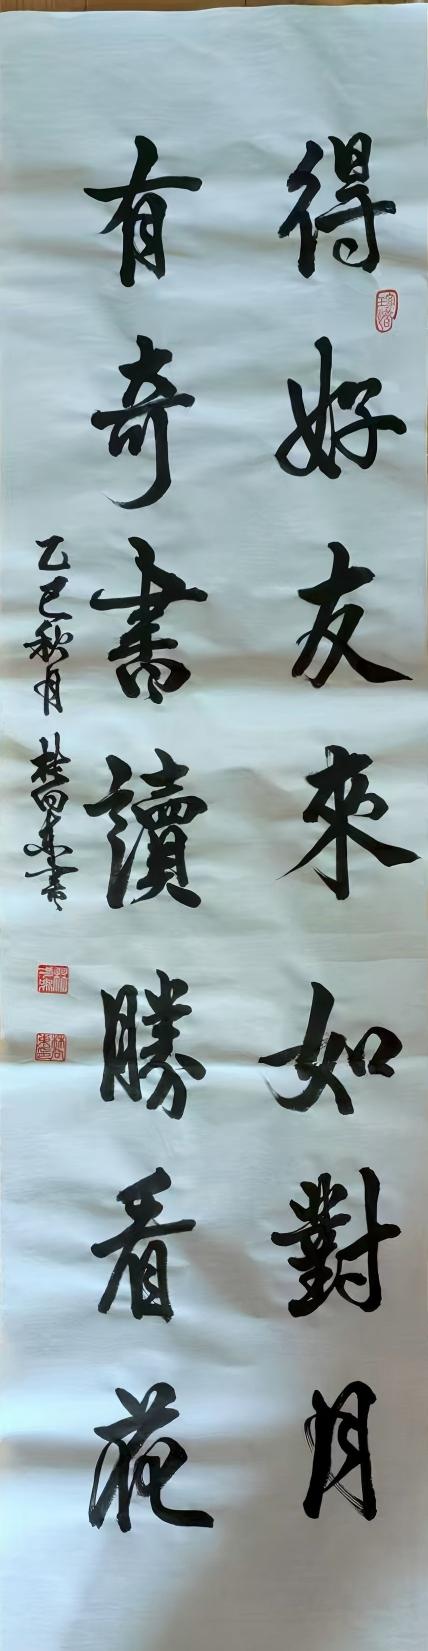 得好友來如對月
有奇書讀勝看花
乙巳秋月 杜向東書